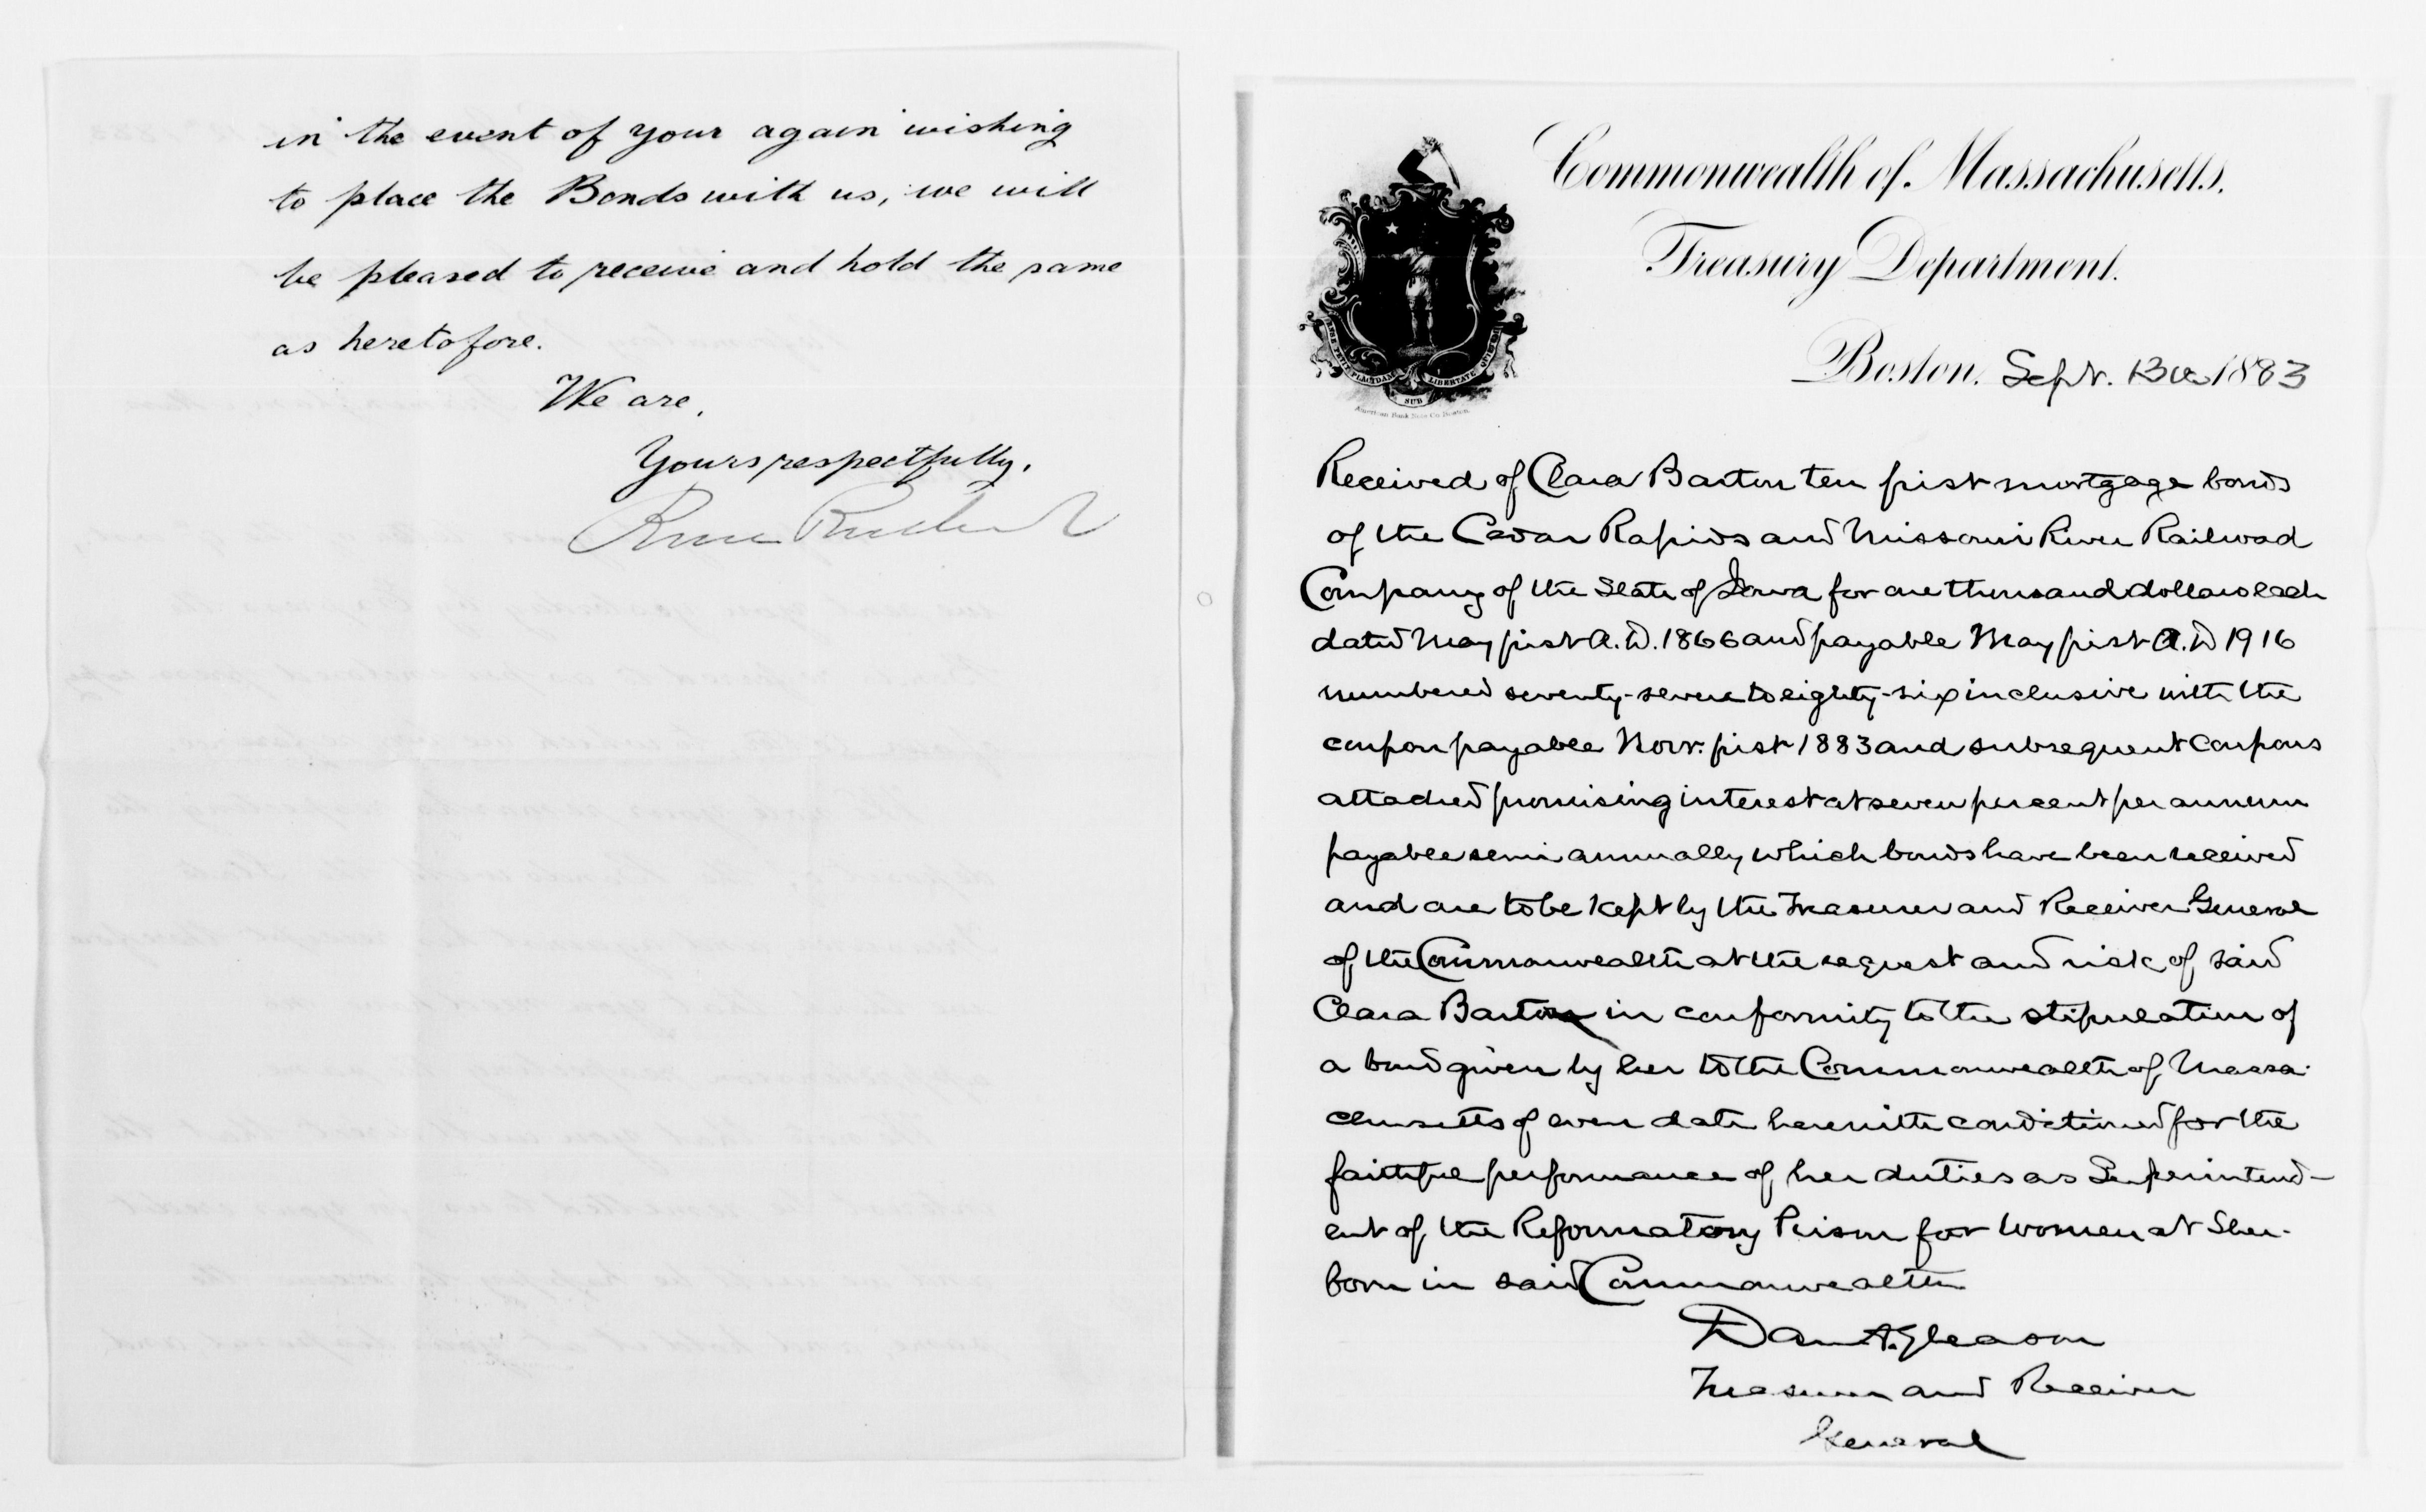 in the event of your again wishing
to place the Bonds with us, we will
be pleased to receive and hold the same
as heretofore.
We are,
Yours respectfully,
Commonwealth of Massachusetts.
Treasury Department.
ENSE PETIT PLACIDAM SUB LIBERTATE QUIETEM
American Bank Note Co. Boston.
Boston, Sept. 13th 1883
Received of Clara Barton ten first mortgage bonds
of the Cedar Rapids and Missouri River Railroad
Company of the State of Iowa for one thousand dollars each
dated May first A.D. 1866 and payable May first A.D 1916
numbered seventy-seven to eighty-six inclusive with the
coupon payable Nov. first 1883 and subsequent coupons
attached promising interest at seven percent per annum
payable semi annually, which bonds have been received
and are to be kept by the Treasurer and Receiver General
of the Commonwealth at the request and risk of said
Clara Barton in conformity to the stipulation of
a bond given by her to the Commonwealth of Massa-
chusetts of even date herewith conditioned for the
faithful performance of her duties as Superintend-
ent of the Reformatory Prison for Women at Sher-
born in said Commonwealth
Dan A. Gleason
Treasurer and Receiver
General